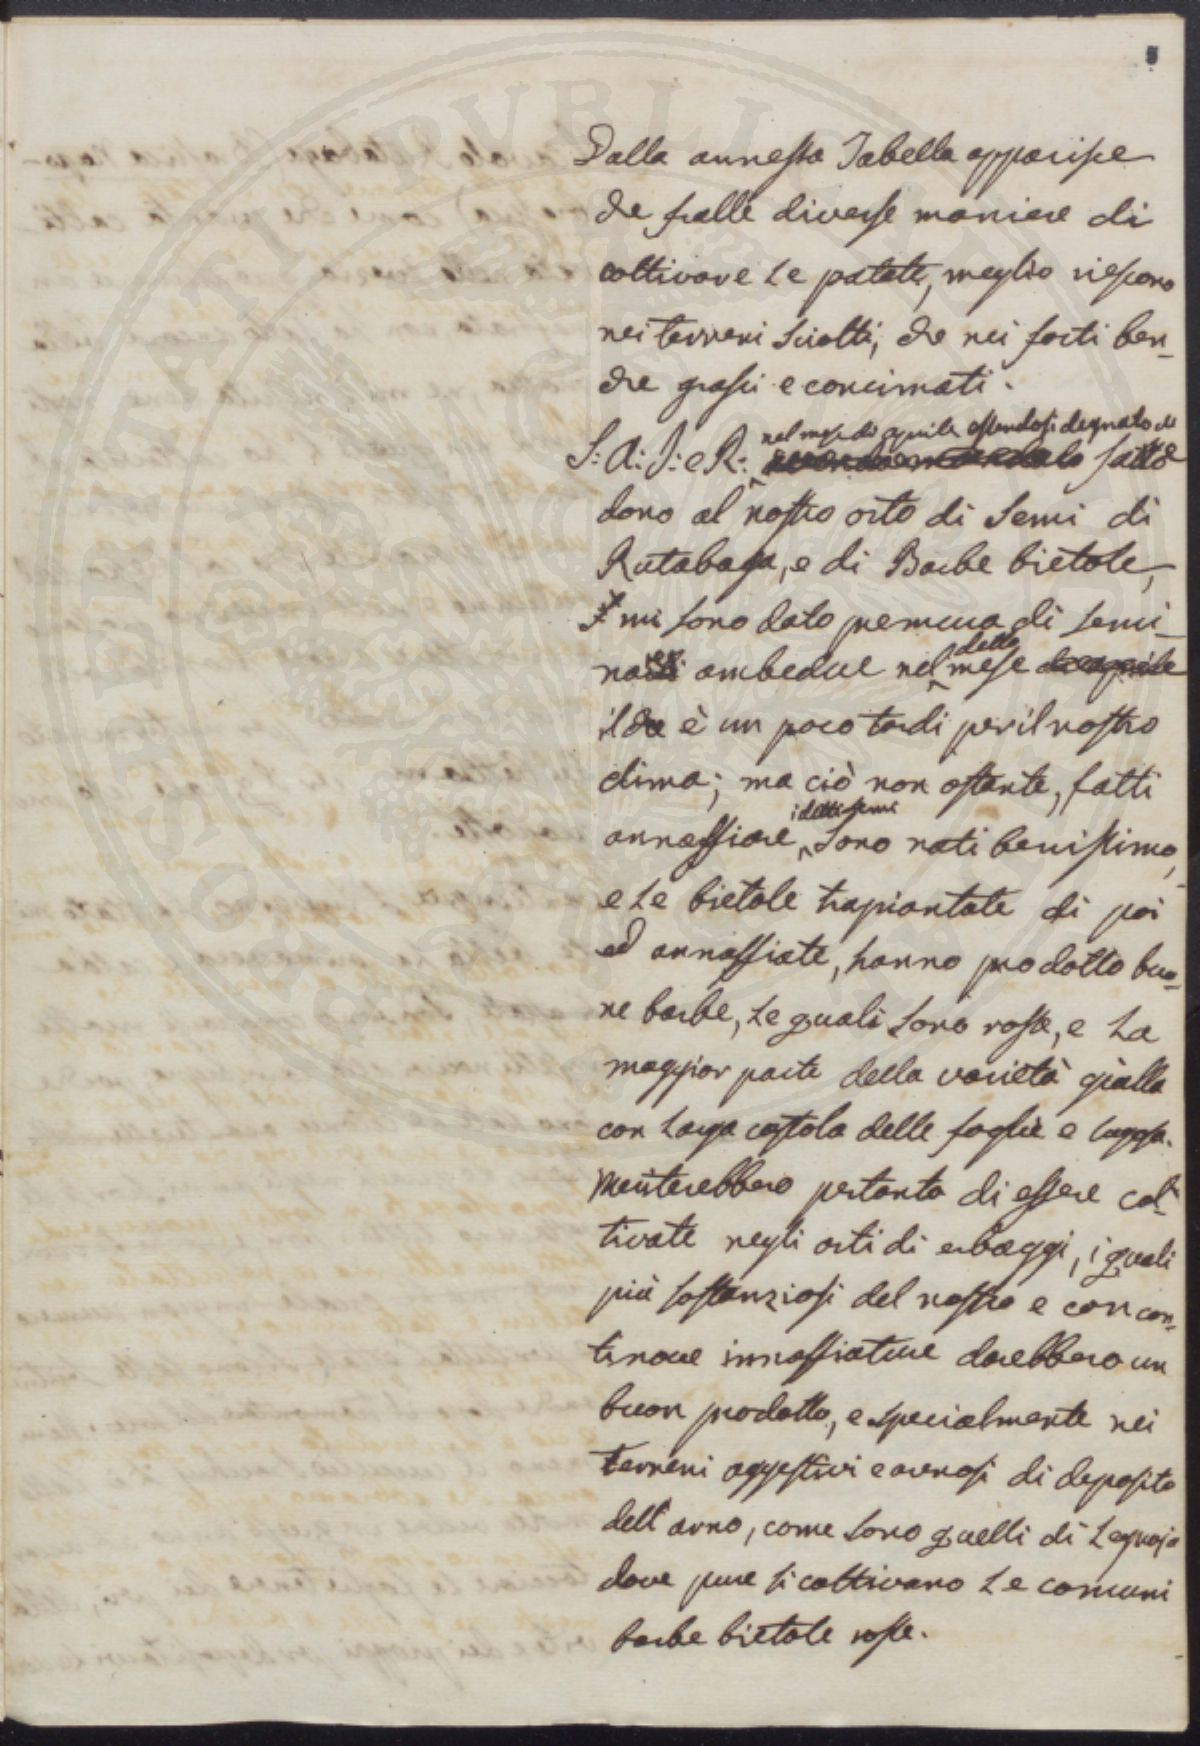 Dalla annessa Tabella apparisce
che fralle diverse maniere di
coltivare le patate, meglio riescono
nei terreni sciolti, che nei forti ben-
che grassi e concimati.
nel mese di aprile essendosi degnato di
S: A: I: e R: fatto
dono al nostro orto di semi di
Rutabaga, e di Barbe bietole,
mi sono dato premura di semi-
detto
nare ambedue nel mese di aprile
il che è un poco tardi per il nostro
clima; ma ciò non ostante, fatti
i detti semi
annaffiare, sono nati benissimo,
e le bietole trapiantate di poi
ed annaffiate, hanno prodotto buo-
ne barbe, le quali sono rosse, e la
maggior parte della varietà gialla
con larga costola delle foglie e lunga.
Meriterebbero pertanto di essere col-
tivate negli orti di erbaggi, i quali
più sostanziosi del nostro e con con-
tinove innaffiature darebbero un
buon prodotto, e specialmente nei
terreni aggestivi e arenosi di deposito
dell'arno, come sono quelli di Legnaja
dove pure si coltivano le comuni
barbe bietole rosse.